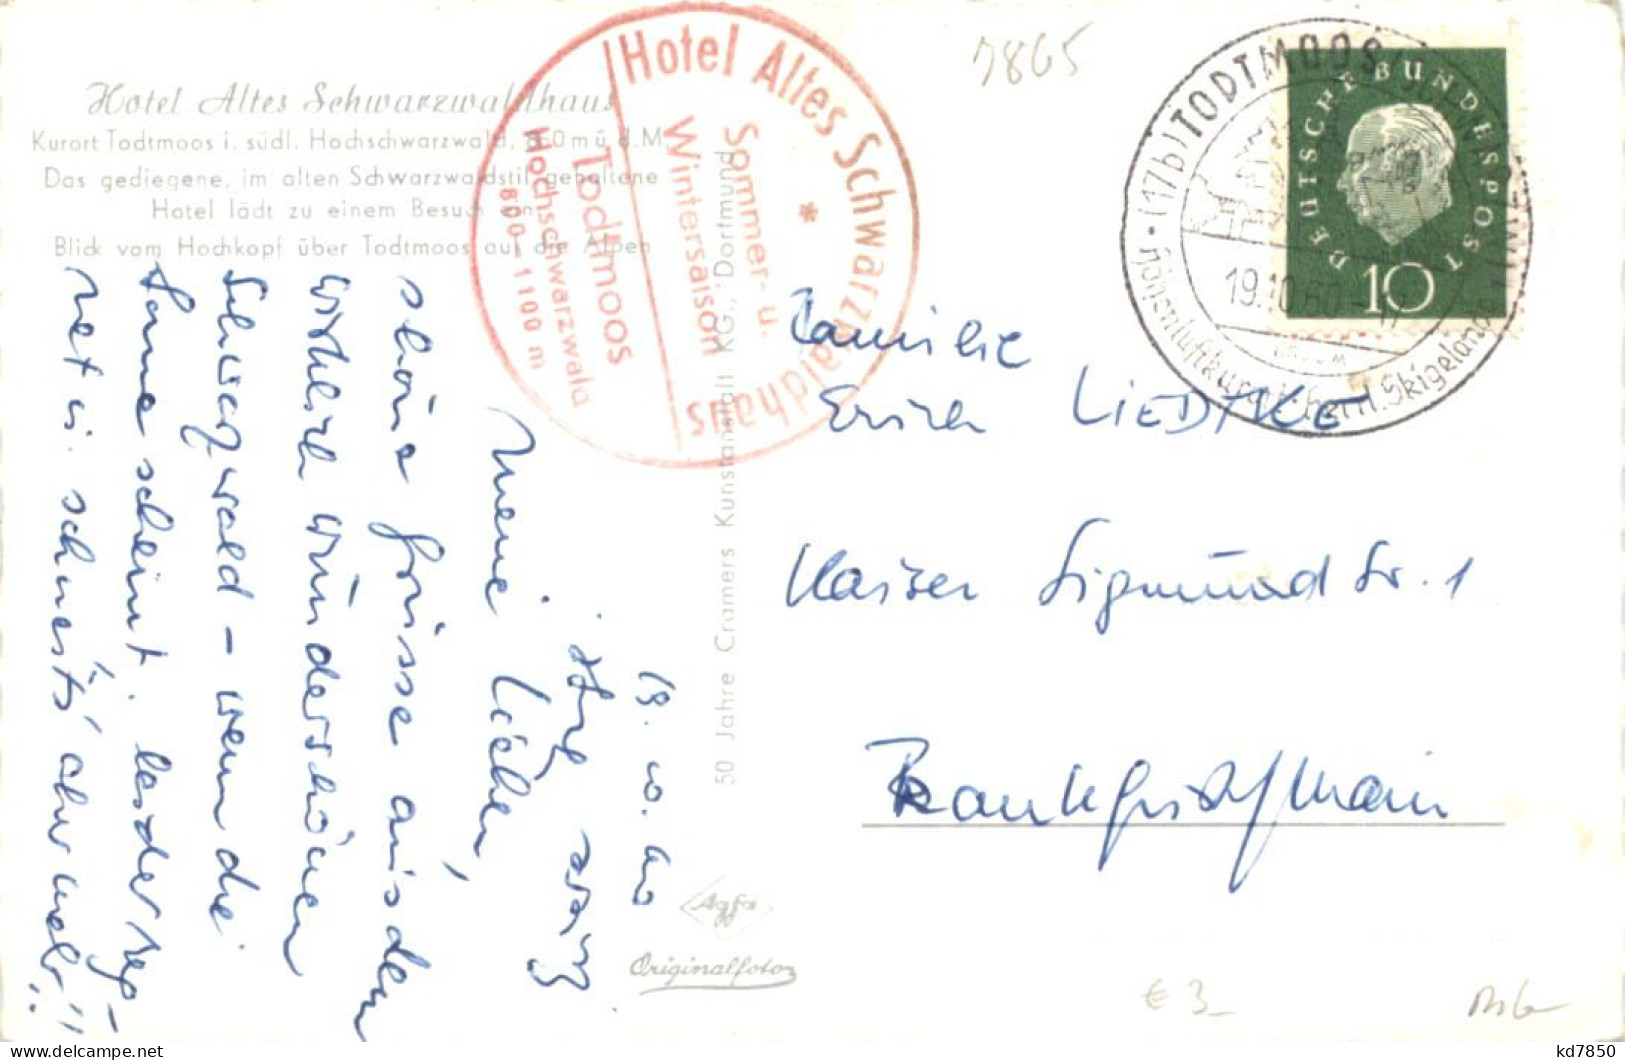 Hotel Altes Schwarzwaldhaus
Kurort Todtmoos i. südl. Hochschwarzwald, 850 m ü. d. M.
Das gediegene, im alten Schwarzwaldstil gehaltene
Hotel lädt zu einem Besuch ein
Blick vom Hochkopf über Todtmoos auf die Alpen
Hotel Altes Schwarzwaldhaus
Sommer- u.
Wintersaison
*
Todtmoos
Hochschwarzwald
800-1100 m
7865
(17b) TODTMOOS
19.10.60
Höhenluftkurort herrl. Skigelände
DEUTSCHE BUNDESPOST
10
50 Jahre Cramers Kunstanstalt KG., Dortmund
19. 10. 60
Meine Lieben,
schöne Grüsse aus dem
wirklich wunderschönen
Schwarzwald - wenn die
Sonne scheint. Leider reg-
net u. schneit's aber auch!!
Familie
Erich LIEDTKE
Kaiser Sigmund Str. 1
Frankfurt/Main
Agfa
Originalfoto
€ 3-
kd7850